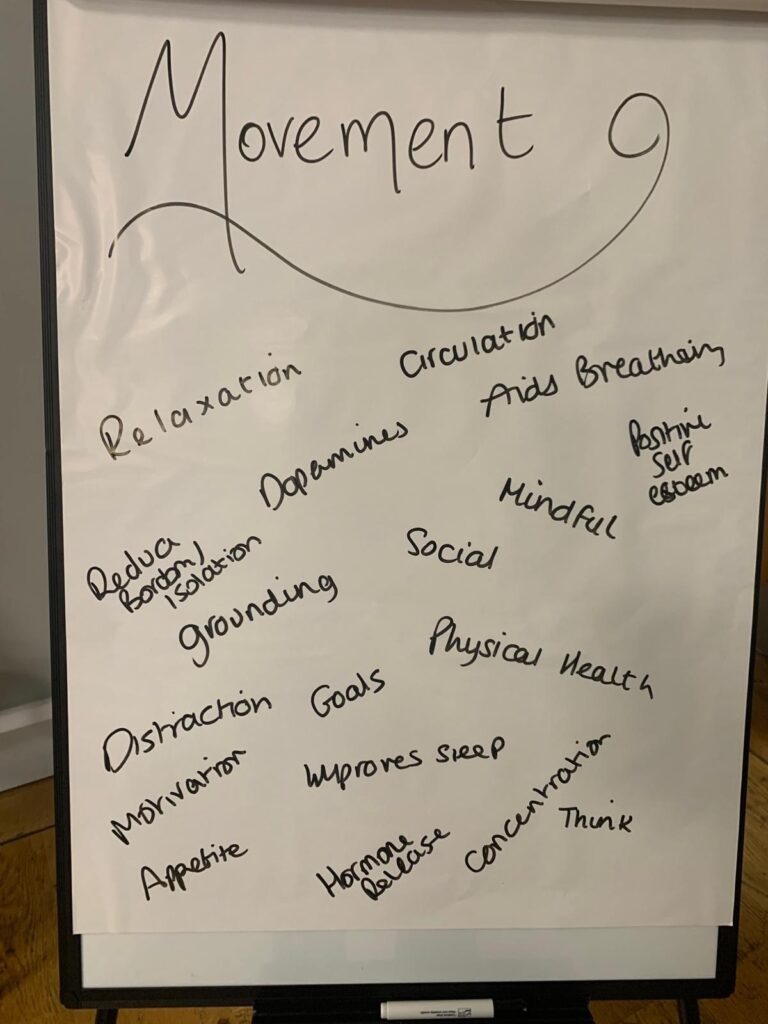 Movement
Relaxation
Circulation
Aids Breatheing
Dopamines
Positive
self
esteem
Mindful
Reduce
Bordom/
isolation
Social
grounding
Physical Health
Distraction
Goals
Motivation
Improves sleep
Concentration
Think
Appetite
Hormone
Release